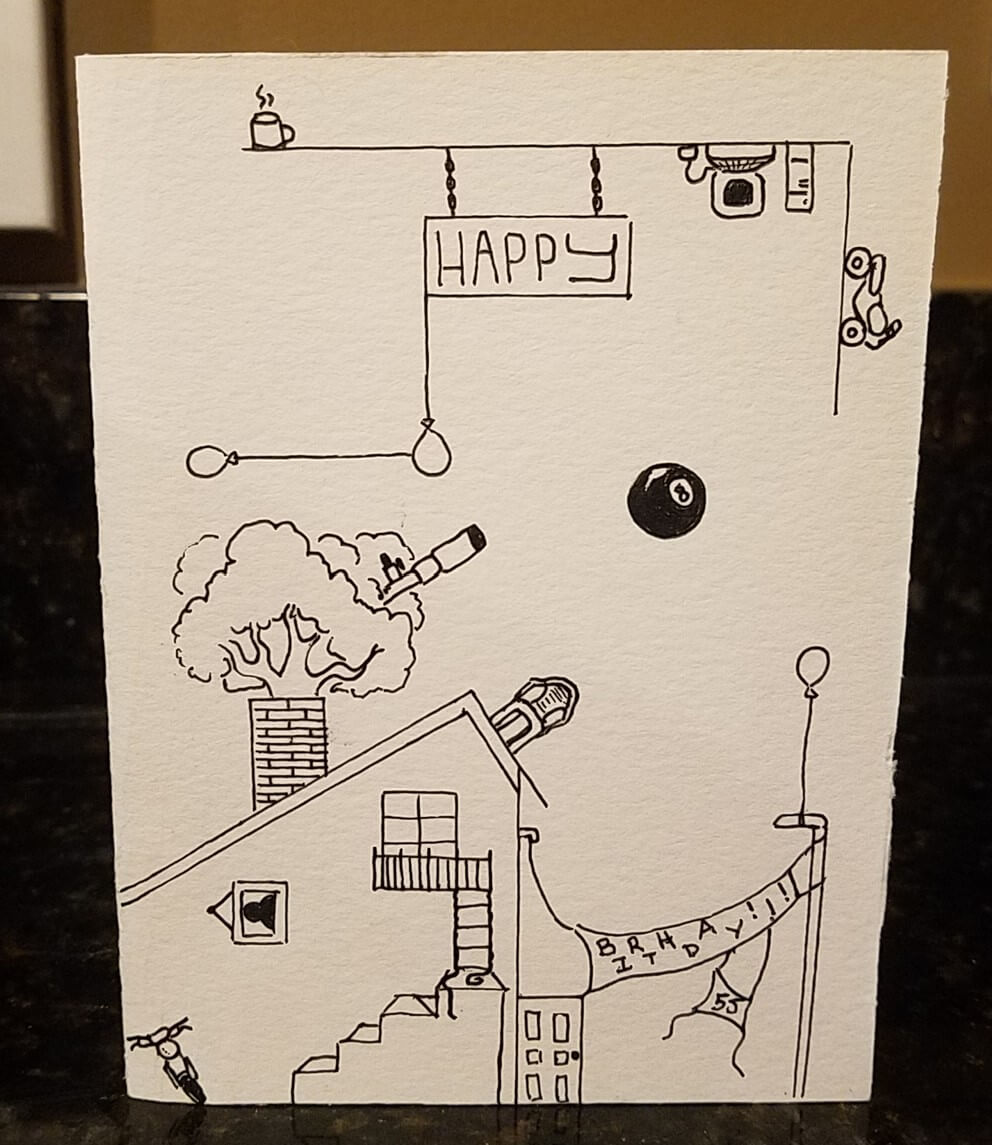 HAPPY
8
BIRTHDAY!!!
53